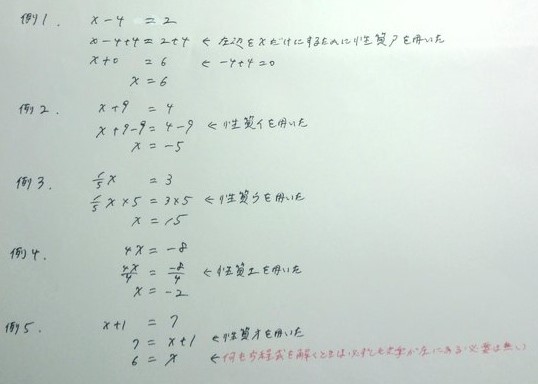 例1. x-4 = 2
x-4+4 = 2+4 ← 左辺をxだけにするために性質アを用いた
x+0 = 6 ← -4+4=0
x = 6
例2. x+9 = 4
x+9-9 = 4-9 ← 性質イを用いた
x = -5
例3. 1/5 x = 3
1/5 x × 5 = 3×5 ← 性質ウを用いた
x = 15
例4. 4x = -8
4x/4 = -8/4 ← 性質エを用いた
x = -2
例5. x+1 = 7
7 = x+1 ← 性質オを用いた
6 = x ← 何も方程式を解くときは必ずしも文字が左にある必要は無い